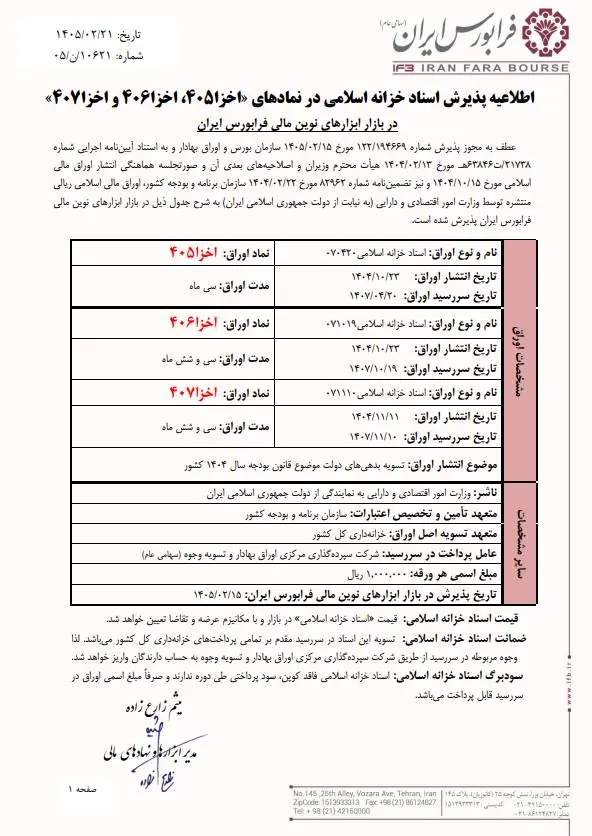 تاریخ: ۱۴۰۵/۰۲/۲۱
شماره: ۱۰۶۲۱/ن/۰۵
فرابورس ایران (سهامی عام)
IFB IRAN FARA BOURSE
اطلاعیه پذیرش اسناد خزانه اسلامی در نمادهای «اخزا۴۰۵، اخزا۴۰۶ و اخزا۴۰۷»
در بازار ابزارهای نوین مالی فرابورس ایران
عطف به مجوز پذیرش شماره ۱۲۲/۱۹۴۶۶۹ مورخ ۱۴۰۵/۰۲/۱۵ سازمان بورس و اوراق بهادار و به استناد آیین‌نامه اجرایی شماره
۲۱۷۳۸/ت۶۳۸۴۶هـ مورخ ۱۴۰۴/۰۲/۱۳ هیأت محترم وزیران و اصلاحیه‌های بعدی آن و صورتجلسه هماهنگی انتشار اوراق مالی
اسلامی مورخ ۱۴۰۴/۱۰/۱۵ و نیز تضمین‌نامه شماره ۸۲۹۶۲ مورخ ۱۴۰۴/۰۲/۲۲ سازمان برنامه و بودجه کشور، اوراق مالی اسلامی ریالی
منتشره توسط وزارت امور اقتصادی و دارایی (به نیابت از دولت جمهوری اسلامی ایران) به شرح جدول ذیل در بازار ابزارهای نوین مالی
فرابورس ایران پذیرش شده است.
مشخصات اوراق
نام و نوع اوراق: اسناد خزانه اسلامی۰۷۰۴۲۰
نماد اوراق: اخزا۴۰۵
تاریخ انتشار اوراق: ۱۴۰۴/۱۰/۲۳
تاریخ سررسید اوراق: ۱۴۰۷/۰۴/۲۰
مدت اوراق: سی ماه
نام و نوع اوراق: اسناد خزانه اسلامی۰۷۱۰۱۹
نماد اوراق: اخزا۴۰۶
تاریخ انتشار اوراق: ۱۴۰۴/۱۰/۲۳
تاریخ سررسید اوراق: ۱۴۰۷/۱۰/۱۹
مدت اوراق: سی و شش ماه
نام و نوع اوراق: اسناد خزانه اسلامی۰۷۱۱۱۰
نماد اوراق: اخزا۴۰۷
تاریخ انتشار اوراق: ۱۴۰۴/۱۱/۱۱
تاریخ سررسید اوراق: ۱۴۰۷/۱۱/۱۰
مدت اوراق: سی و شش ماه
موضوع انتشار اوراق: تسویه بدهی‌های دولت موضوع قانون بودجه سال ۱۴۰۴ کشور
سایر مشخصات
ناشر: وزارت امور اقتصادی و دارایی به نمایندگی از دولت جمهوری اسلامی ایران
متعهد تأمین و تخصیص اعتبارات: سازمان برنامه و بودجه کشور
متعهد تسویه اصل اوراق: خزانه‌داری کل کشور
عامل پرداخت در سررسید: شرکت سپرده‌گذاری مرکزی اوراق بهادار و تسویه وجوه (سهامی عام)
مبلغ اسمی هر ورقه: ۱,۰۰۰,۰۰۰ ریال
تاریخ پذیرش در بازار ابزارهای نوین مالی فرابورس ایران: ۱۴۰۵/۰۲/۱۵
قیمت اسناد خزانه اسلامی: قیمت «اسناد خزانه اسلامی» در بازار و با مکانیزم عرضه و تقاضا تعیین خواهد شد.
ضمانت اسناد خزانه اسلامی: تسویه این اسناد در سررسید مقدم بر تمامی پرداخت‌های خزانه‌داری کل کشور می‌باشد. لذا
وجوه مربوطه در سررسید از طریق شرکت سپرده‌گذاری مرکزی اوراق بهادار و تسویه وجوه به حساب دارندگان واریز خواهد شد.
سودبرگ اسناد خزانه اسلامی: اسناد خزانه اسلامی فاقد کوپن، سود پرداختی طی دوره ندارند و صرفاً مبلغ اسمی اوراق در
سررسید قابل پرداخت می‌باشد.
میثم زارع زاده
مدیر ابزارها و نهادهای مالی
www.ifb.ir
صفحه ۱
No.145 ,25th Alley, Vozara Ave, Tehran, Iran
ZipCode: 1513933313 Fax: +98 (21) 86124827
Tel: + 98 (21) 42150000
تهران، خیابان وزرا، نبش کوچه ۲۵ (کاتوزیان)، پلاک ۱۴۵
تلفن: ۴۲۱۵۰۰۰۰-۰۲۱ کدپستی: ۱۵۱۳۹۳۳۳۱۳
نمابر: ۸۶۱۲۴۸۲۷-۰۲۱